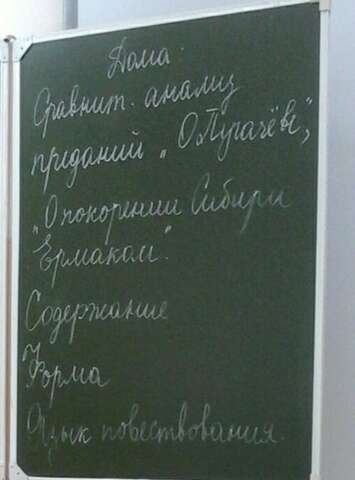 Дома:
Сравнит. анализ
преданий „О Пугачёве",
„О покорении Сибири
Ермаком".
Содержание
Форма
Язык повествования.